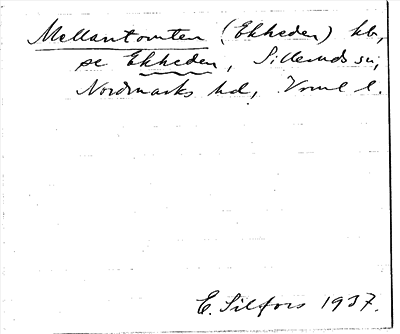 Mellantomten (Ekheden) hb,
se Ekheden, Silleruds sn,
Nordmarks hd, Vrml l.
E. Silfors 1937.